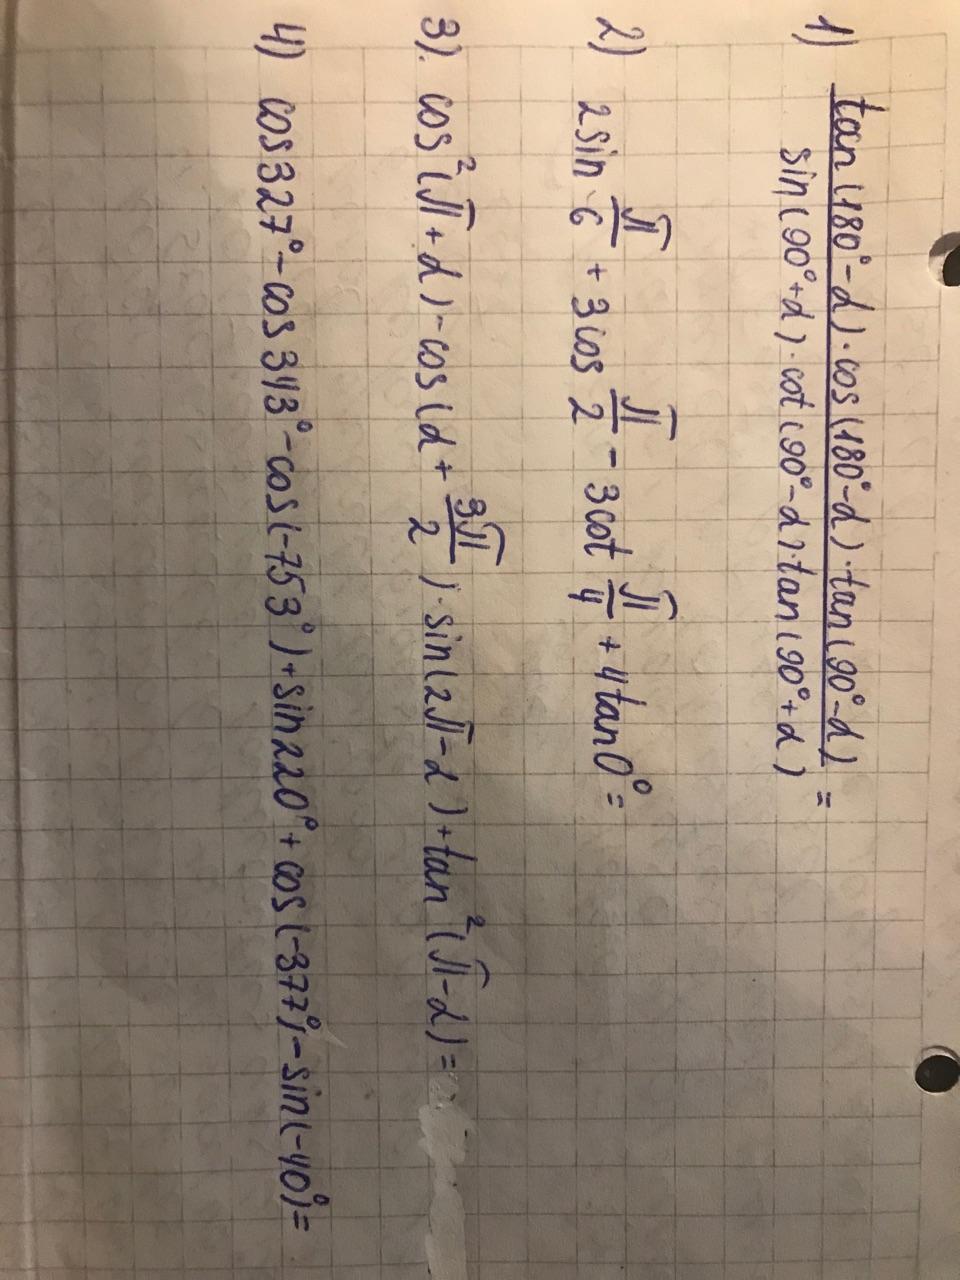 1) tan(180°-α)·cos(180°-α)·tan(90°-α)
sin(90°+α)·cot(90°-α)·tan(90°+α) =
2) 2sin π/6 + 3cos π/2 - 3cot π/4 + 4tan0° =
3). cos²(π+α)-cos(α+3π/2)·sin(2π-α)+tan²(π-α)=
4) cos327°-cos343°-cos(-753°)+sin220°+cos(-377°)-sin(-40°)=